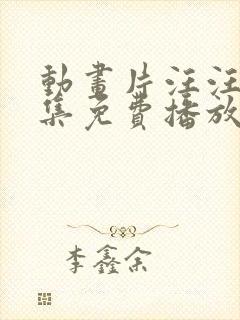 動畫片汪汪
集免費播放
李鑫余